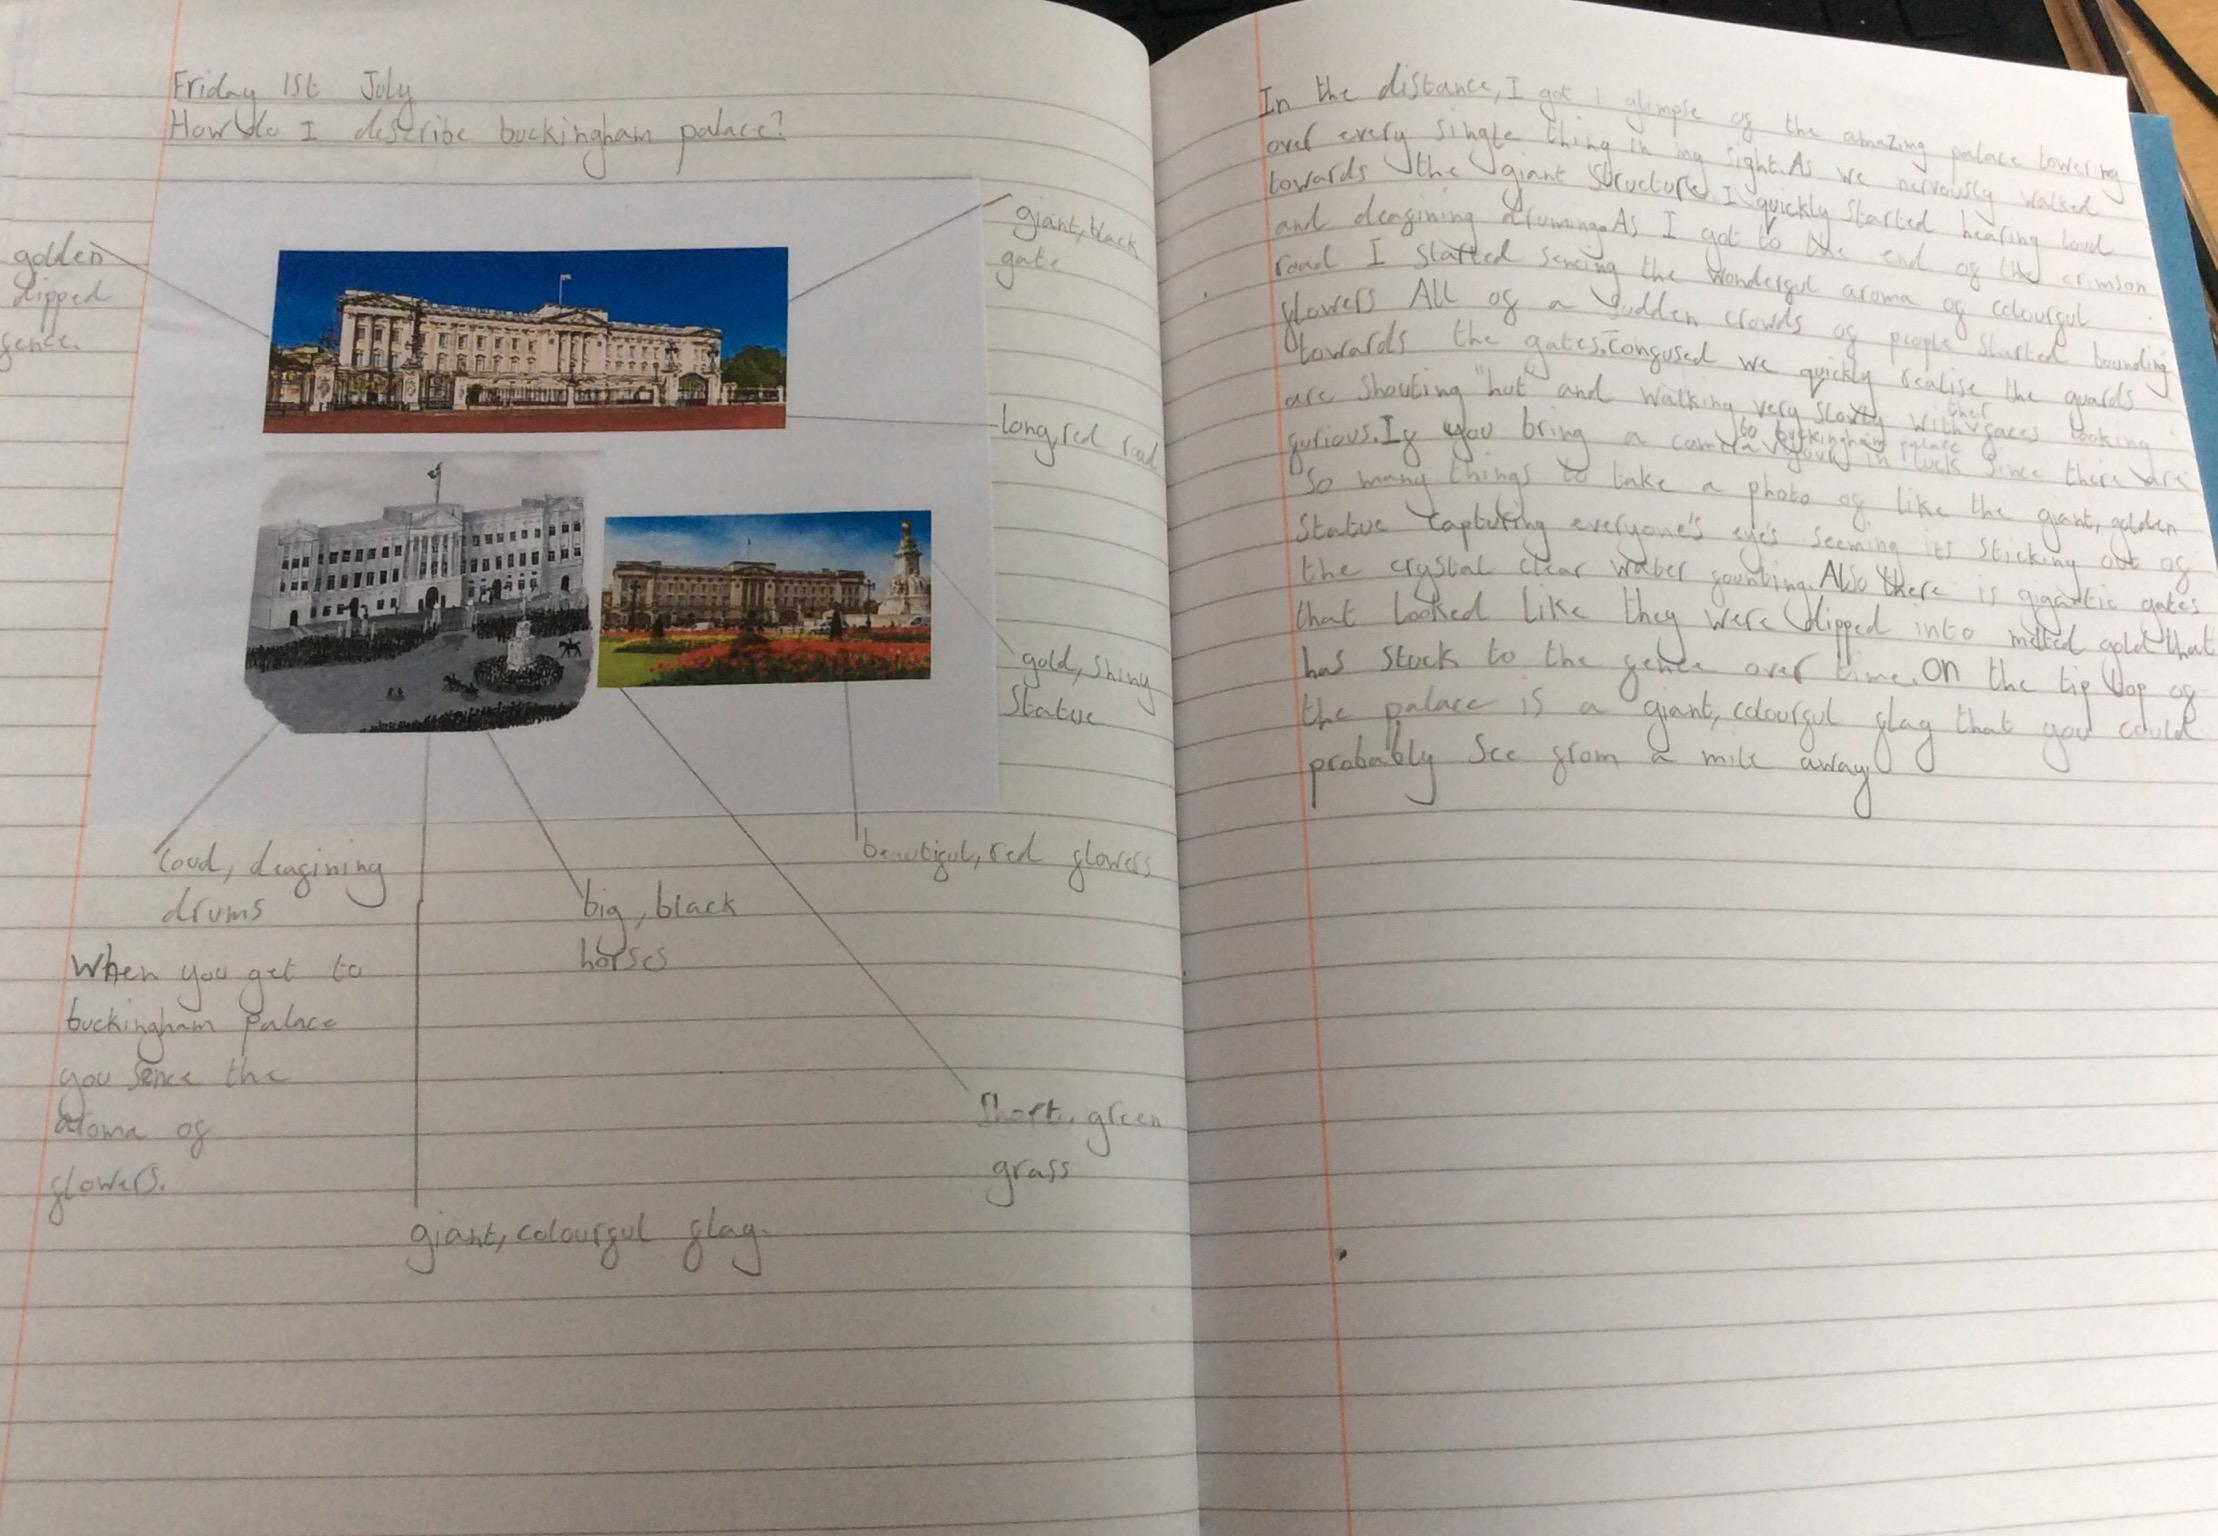 Friday 1st July
How do I describe buckingham palace?
golden
dipped
fence.
giant, black
gate
long, red road
gold, shiny
statue
loud, deafining
drums
big, black
horses
beautiful, red flowers
When you get to
buckingham palace
you sence the
aroma of
flowers.
Short, green
grass
giant, colourful flag.
In the distance, I got a glimpse of the amazing palace towering
over every single thing in my sight. As we nervously walked
towards the giant structure. I quickly started hearing loud
and deafining druming. As I got to the end of the crimson
road I started sencing the wonderful aroma of colourful
flowers All of a sudden crowds of people started bounding
towards the gates. Confused we quickly realise the guards
are shouting "hut" and walking very slowly with ther faces looking
furious. If you bring a camera to buckingham palace your in luck since there are
so many things to take a photo of like the giant, golden
statue capturing everyone's eye's seeming its sticking out of
the crystal clear water founting. Also there is gigantic gates
that looked like they were dipped into melted gold that
has stuck to the fence over time. On the tip top of
the palace is a giant, colourful flag that you could
probably see from a mile away.